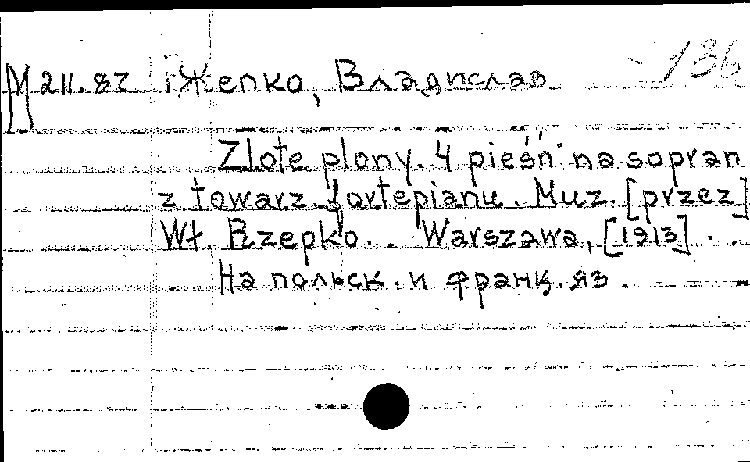 М 211.87 Жепко, Владислав 136
Zlote plony. 4 pieśń na sopran
z towarz. fortepianu. Muz. [przez]
Wł. Rzepko. Warszawa, [1913].
На польск. и франц. яз.